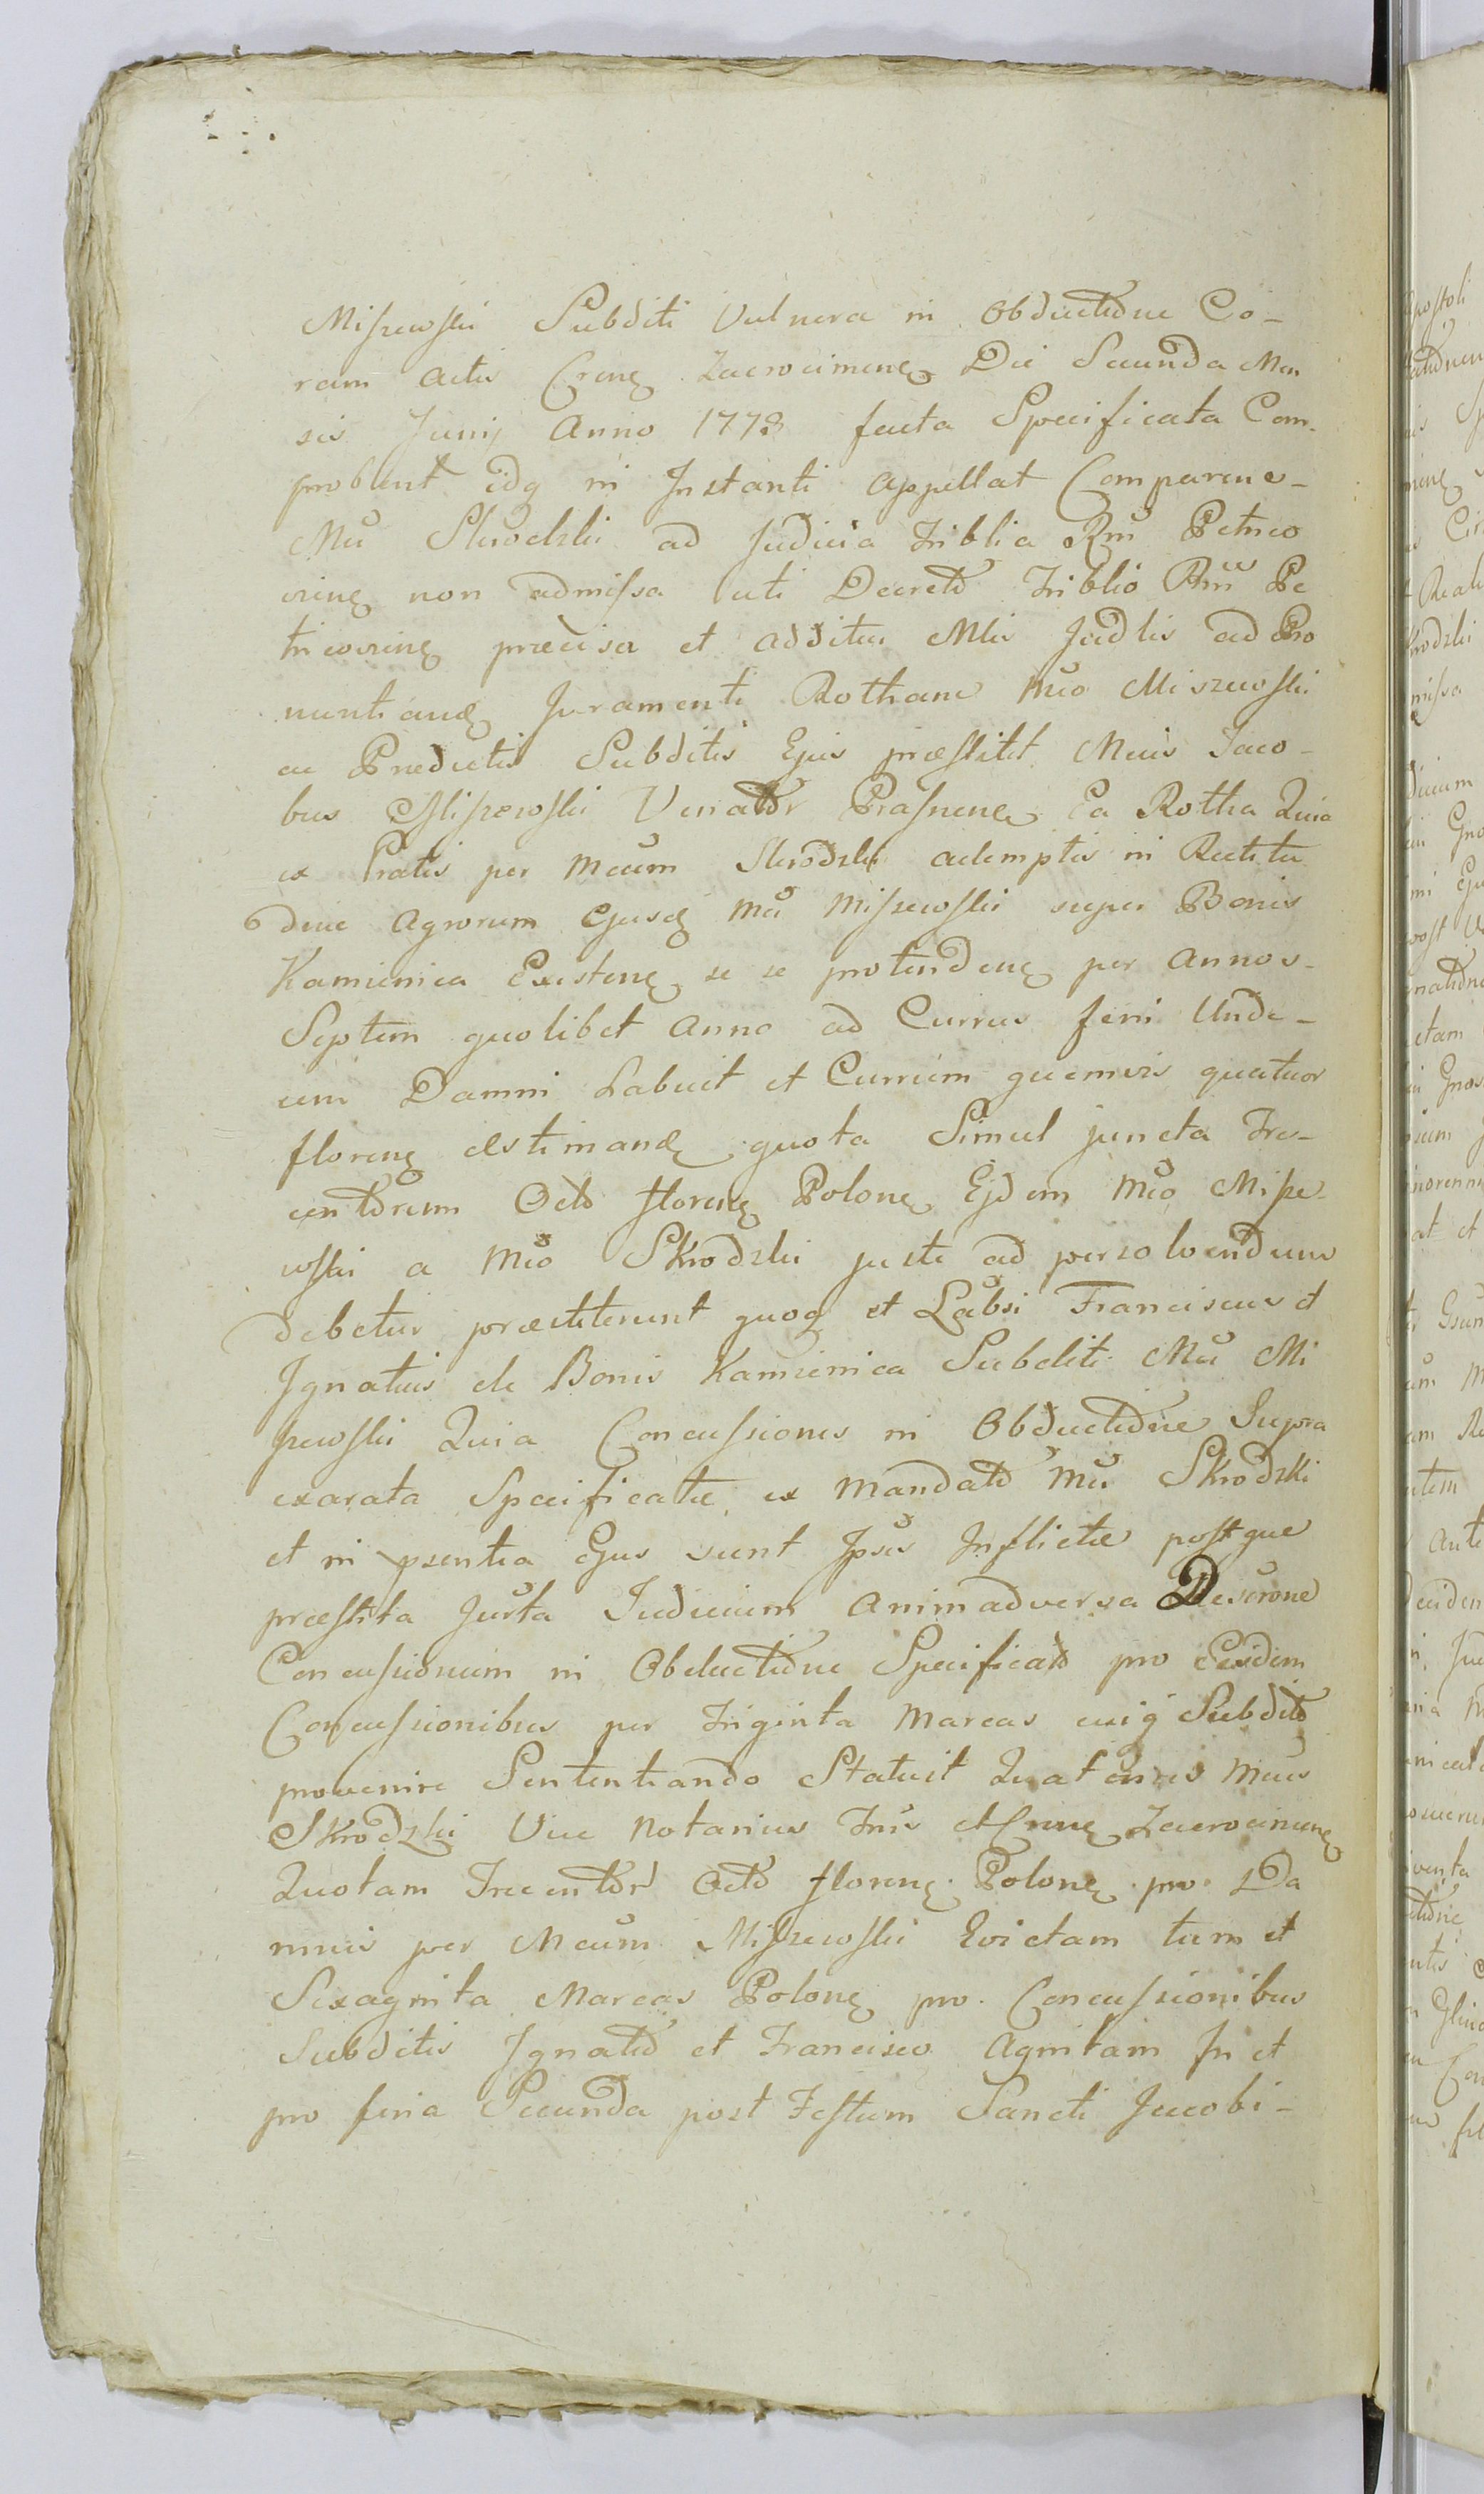 Miszewski Subditi Vulnera in Obductione Co-
ram actis Crens Zacrocimens Die Secunda Men
sis Junij Anno 1778 facta Specificata Com-
probent idq in Instanti appellat Comparens-
Mci Skrodzki ad Judicia Triblia Rni Petrico
viens non admissa uti Decreto Triblio Rni Pe
tricoviens præcisa et additus Mlis Judlis ad Pro
nuntiand Juramenti Rotham Mco Miszewski
ac Præductis Subditis Ejus præstitit Mcus Jaco-
bus Miszewski Venator Prasnens Ea Rotha Quia
ex Pratis per Mcum Skrodzki ademptis in Rectitu
dine Agrorum Ejusd Mci Miszewski super Bonis
Kamienica Existens se se protendens per Annos-
Septem quolibet Anno ad Currus feni Unde-
cim Damni habuit et Currum quemvis quatuor
florens æstimand quota Simul juncta Tre-
centorum Octo florens Polons Ejdem Mco Misze-
wski a Mco Skrodzki juste ad persolvendum
debetur præstiterunt quoq et Labsi Franciscus et
Ignatius de Bonis Kamienica Subditi Mci Mi
szewski Quia Concussiones in Obductione Supra
exarata Specificatæ ex Mandato Mci Skrodzki
et in psentia Ejus sunt Ipsis Inflictæ postque
præstita Jurta Judicium Animadversa
Concussionum in Obductione Specificato pro Eisdem
Concussionibus per Triginta Marcas cuiq Subdito
provenire Sententiando Statuit Quatenus Mcus
Skrodzki Vice Notarius Tris et Crens Zacrocimens
Quotam Trecentor Octo florens Polons pro Da
mnis per Mcum Miszewski Evictam tum et
Sexaginta Marcas Polons pro Concussionibus
Subditis Ignatio et Francisco Agnitam In et
pro feria Secunda post Festum Sancti Jacobi-